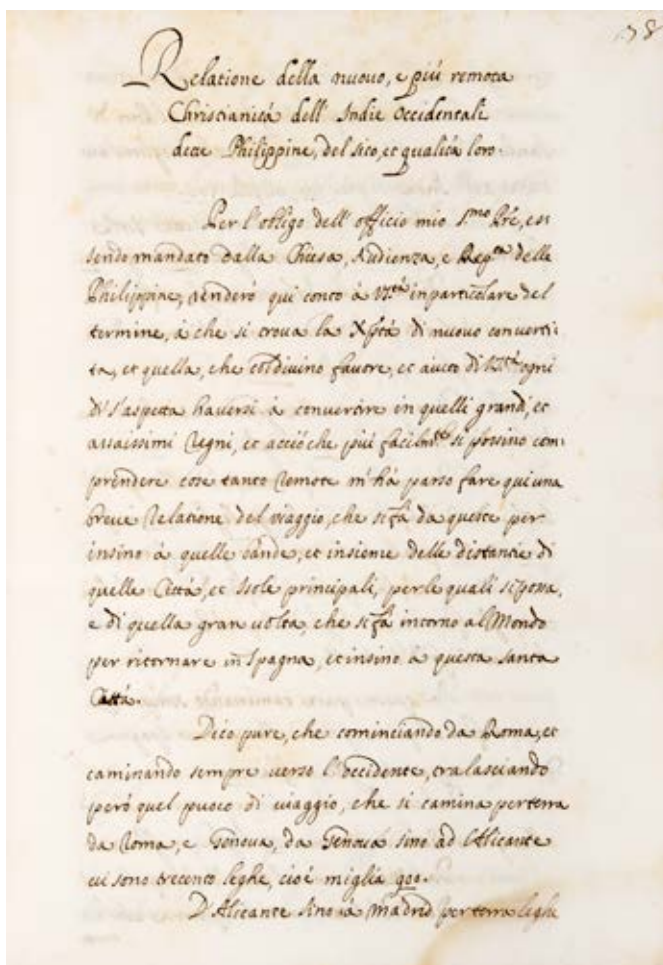 138
Relatione della nuouo, e più remota
Christianità dell' Indie Occidentali
dette Philippine, del sito, et qualità loro.
Per l'obligo dell' officio mio S.mo Pre, es
sendo mandato dalla Chiesa, Audienza, e Rep.ca delle
Philippine, renderò qui conto à V.S.tà in particolare del
termine, à che si troua la Xp̃tà di nuouo conuerti-
ta, et quella, che col diuino fauore, et aiuto di V.S.tà ogni
dì s'aspetta hauersi à conuertire in quelli grandi, et
assaissimi Regni, et acciò che più facilm.te si possino com-
prendere cose tanto remote m'hà parso fare qui una
breue Relatione del viaggio, che si fà da queste per
insino à quelle bande, et insieme delle distantie di
quelle Città, et Isole principali, per le quali si passa,
e di quella gran uolta, che si fà intorno al Mondo
per ritornare in Spagna, et insino à questa santa
Città.
Dico pure, che cominciando da Roma, et
caminando sempre uerso l'occidente, tralasciando
però quel puoco di uiaggio, che si camina per terra
da Roma, e Genoua, da Genoua sino ad Alicante
ui sono trecento leghe, cioè miglia 900.
D'Alicante sino à Madrid per terra leghe